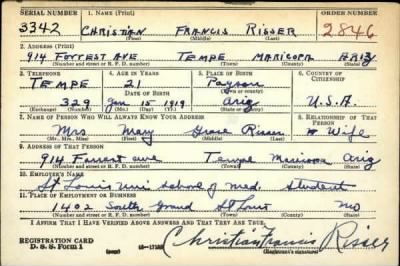 SERIAL NUMBER 1. NAME (Print) ORDER NUMBER
3342 CHRISTIAN FRANCIS RISSER 2846
(First) (Middle) (Last)
2. ADDRESS (Print)
914 FORREST AVE TEMPE MARICOPA ARIZ
(Number and street or R. F. D. number) (Town) (County) (State)
3. TELEPHONE 4. AGE IN YEARS 5. PLACE OF BIRTH 6. COUNTRY OF CITIZENSHIP
TEMPE 21 Payson
DATE OF BIRTH (Town or county)
329 Jan 15 1919 Ariz U.S.A.
(Exchange) (Number) (Mo.) (Day) (Yr.) (State or country)
7. NAME OF PERSON WHO WILL ALWAYS KNOW YOUR ADDRESS 8. RELATIONSHIP OF THAT PERSON
Mrs Mary Grace Risser Wife
(Mr., Mrs., Miss) (First) (Middle) (Last)
9. ADDRESS OF THAT PERSON
914 Forrest ave Tempe Maricopa Ariz
(Number and street or R. F. D. number) (Town) (County) (State)
10. EMPLOYER'S NAME
St Louis Uni School of med. Student
11. PLACE OF EMPLOYMENT OR BUSINESS
1402 South Grand St Louis Mo
(Number and street or R. F. D. number) (Town) (County) (State)
I AFFIRM THAT I HAVE VERIFIED ABOVE ANSWERS AND THAT THEY ARE TRUE.
REGISTRATION CARD
D. S. S. Form 1 (over) Christian Francis Risser
(Registrant's signature)